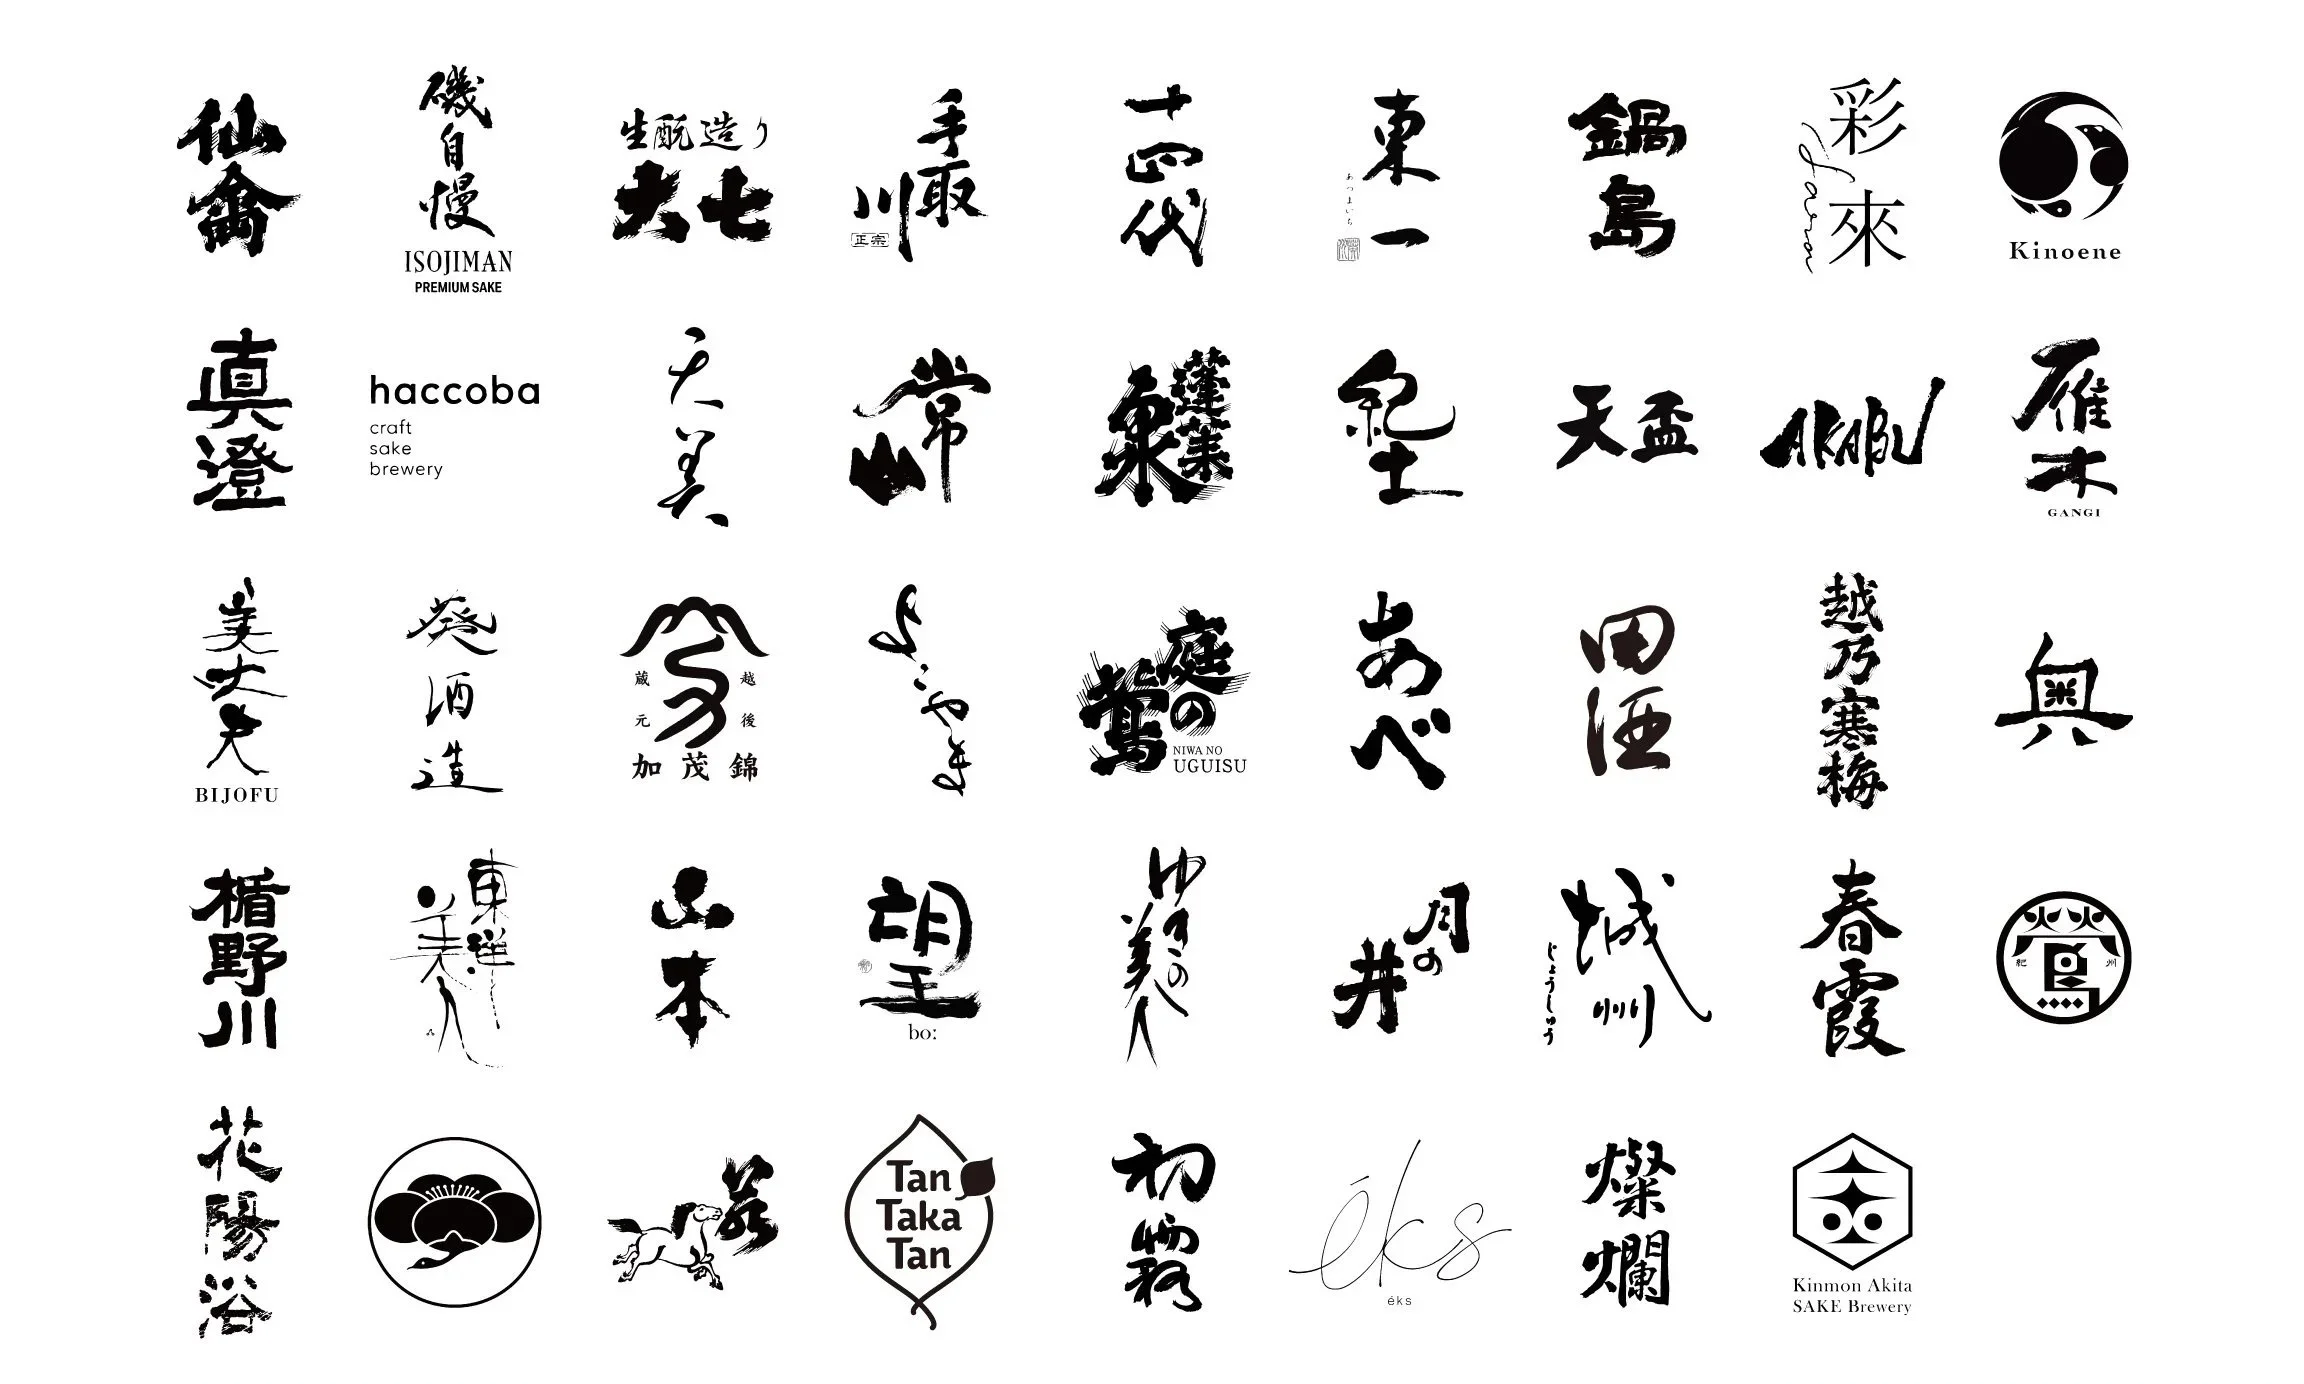 仙禽
磯自慢
ISOJIMAN
PREMIUM SAKE
生酛造り
大七
手取川
正宗
十四代
東一
あづまいち
鍋島
彩來
Sara
Kinoene
真澄
haccoba
craft
sake
brewery
天美
常山
蓬莱泉
紀土
天盃
AKABU
雁木
GANGI
美丈夫
BIJOFU
葵酒造
蔵元
越後
加茂錦
みやさか
庭の鶯
NIWA NO
UGUISU
あべ
田酒
越乃寒梅
奥
楯野川
東洋美人
山本
望
bo:
ゆきの美人
月の井
城州
じょうしゅう
春霞
紀州
鶯
花陽浴
Tan
Taka
Tan
初霧
éks
éks
燦爛
Kinmon Akita
SAKE Brewery